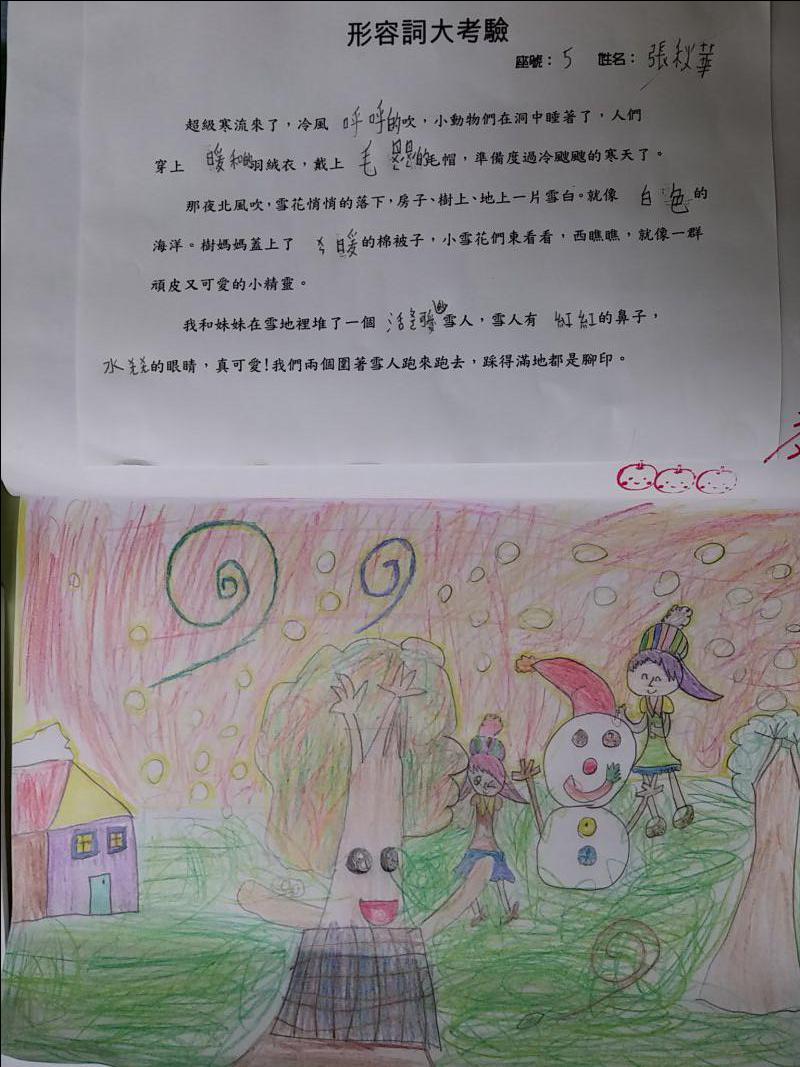 形容詞大考驗
座號：5 姓名：張秋華
超級寒流來了，冷風 呼呼的吹，小動物們在洞中睡著了，人們
穿上 暖和的羽絨衣，戴上 毛 的毛帽，準備度過冷颼颼的寒天了。
那夜北風吹，雪花悄悄的落下，房子、樹上、地上一片雪白。就像 白色的
海洋。樹媽媽蓋上了 暖的棉被子，小雪花們東看看，西瞧瞧，就像一群
頑皮又可愛的小精靈。
我和妹妹在雪地裡堆了一個 雪人，雪人有 紅紅的鼻子，
水 的眼睛，真可愛!我們兩個圍著雪人跑來跑去，踩得滿地都是腳印。